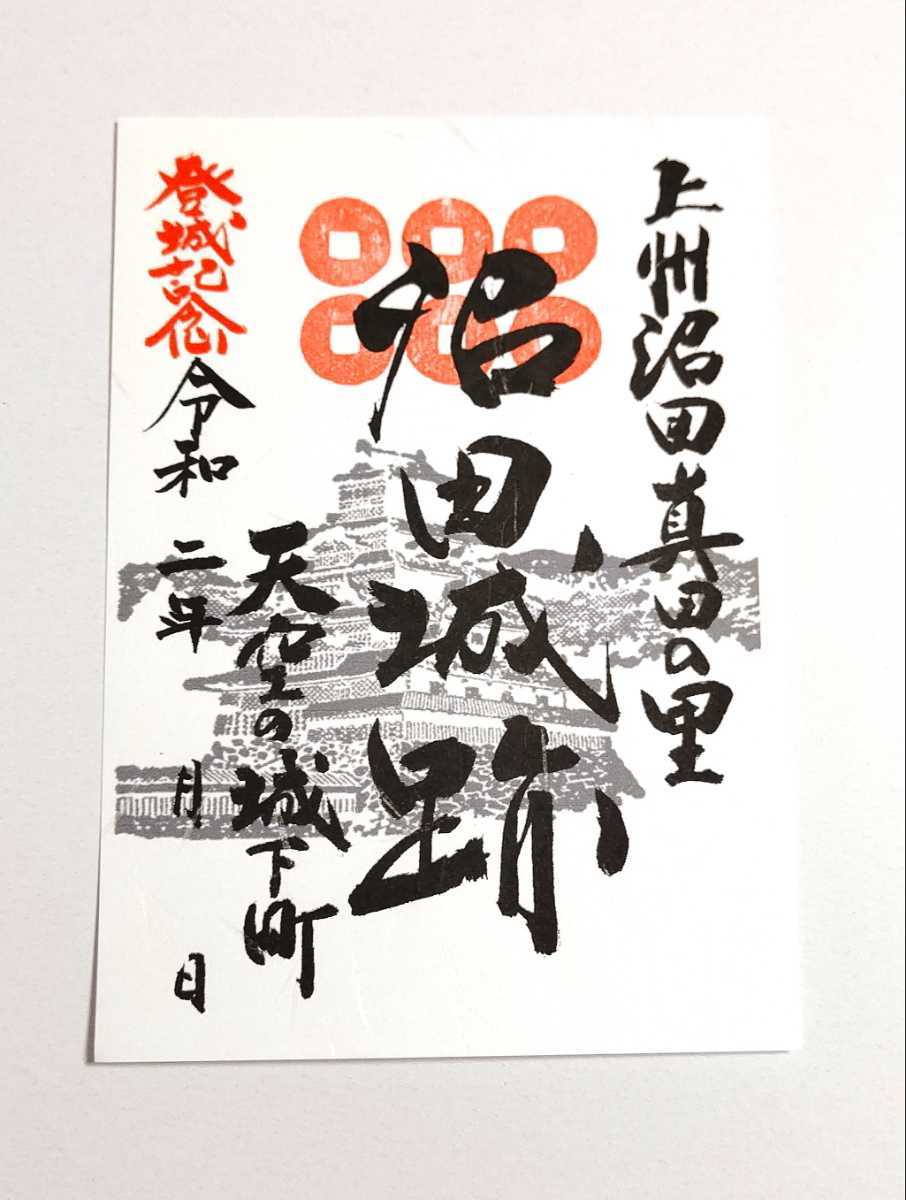 上州沼田真田の里
沼田城跡
天空の城下町
登城記念
令和二年 月 日